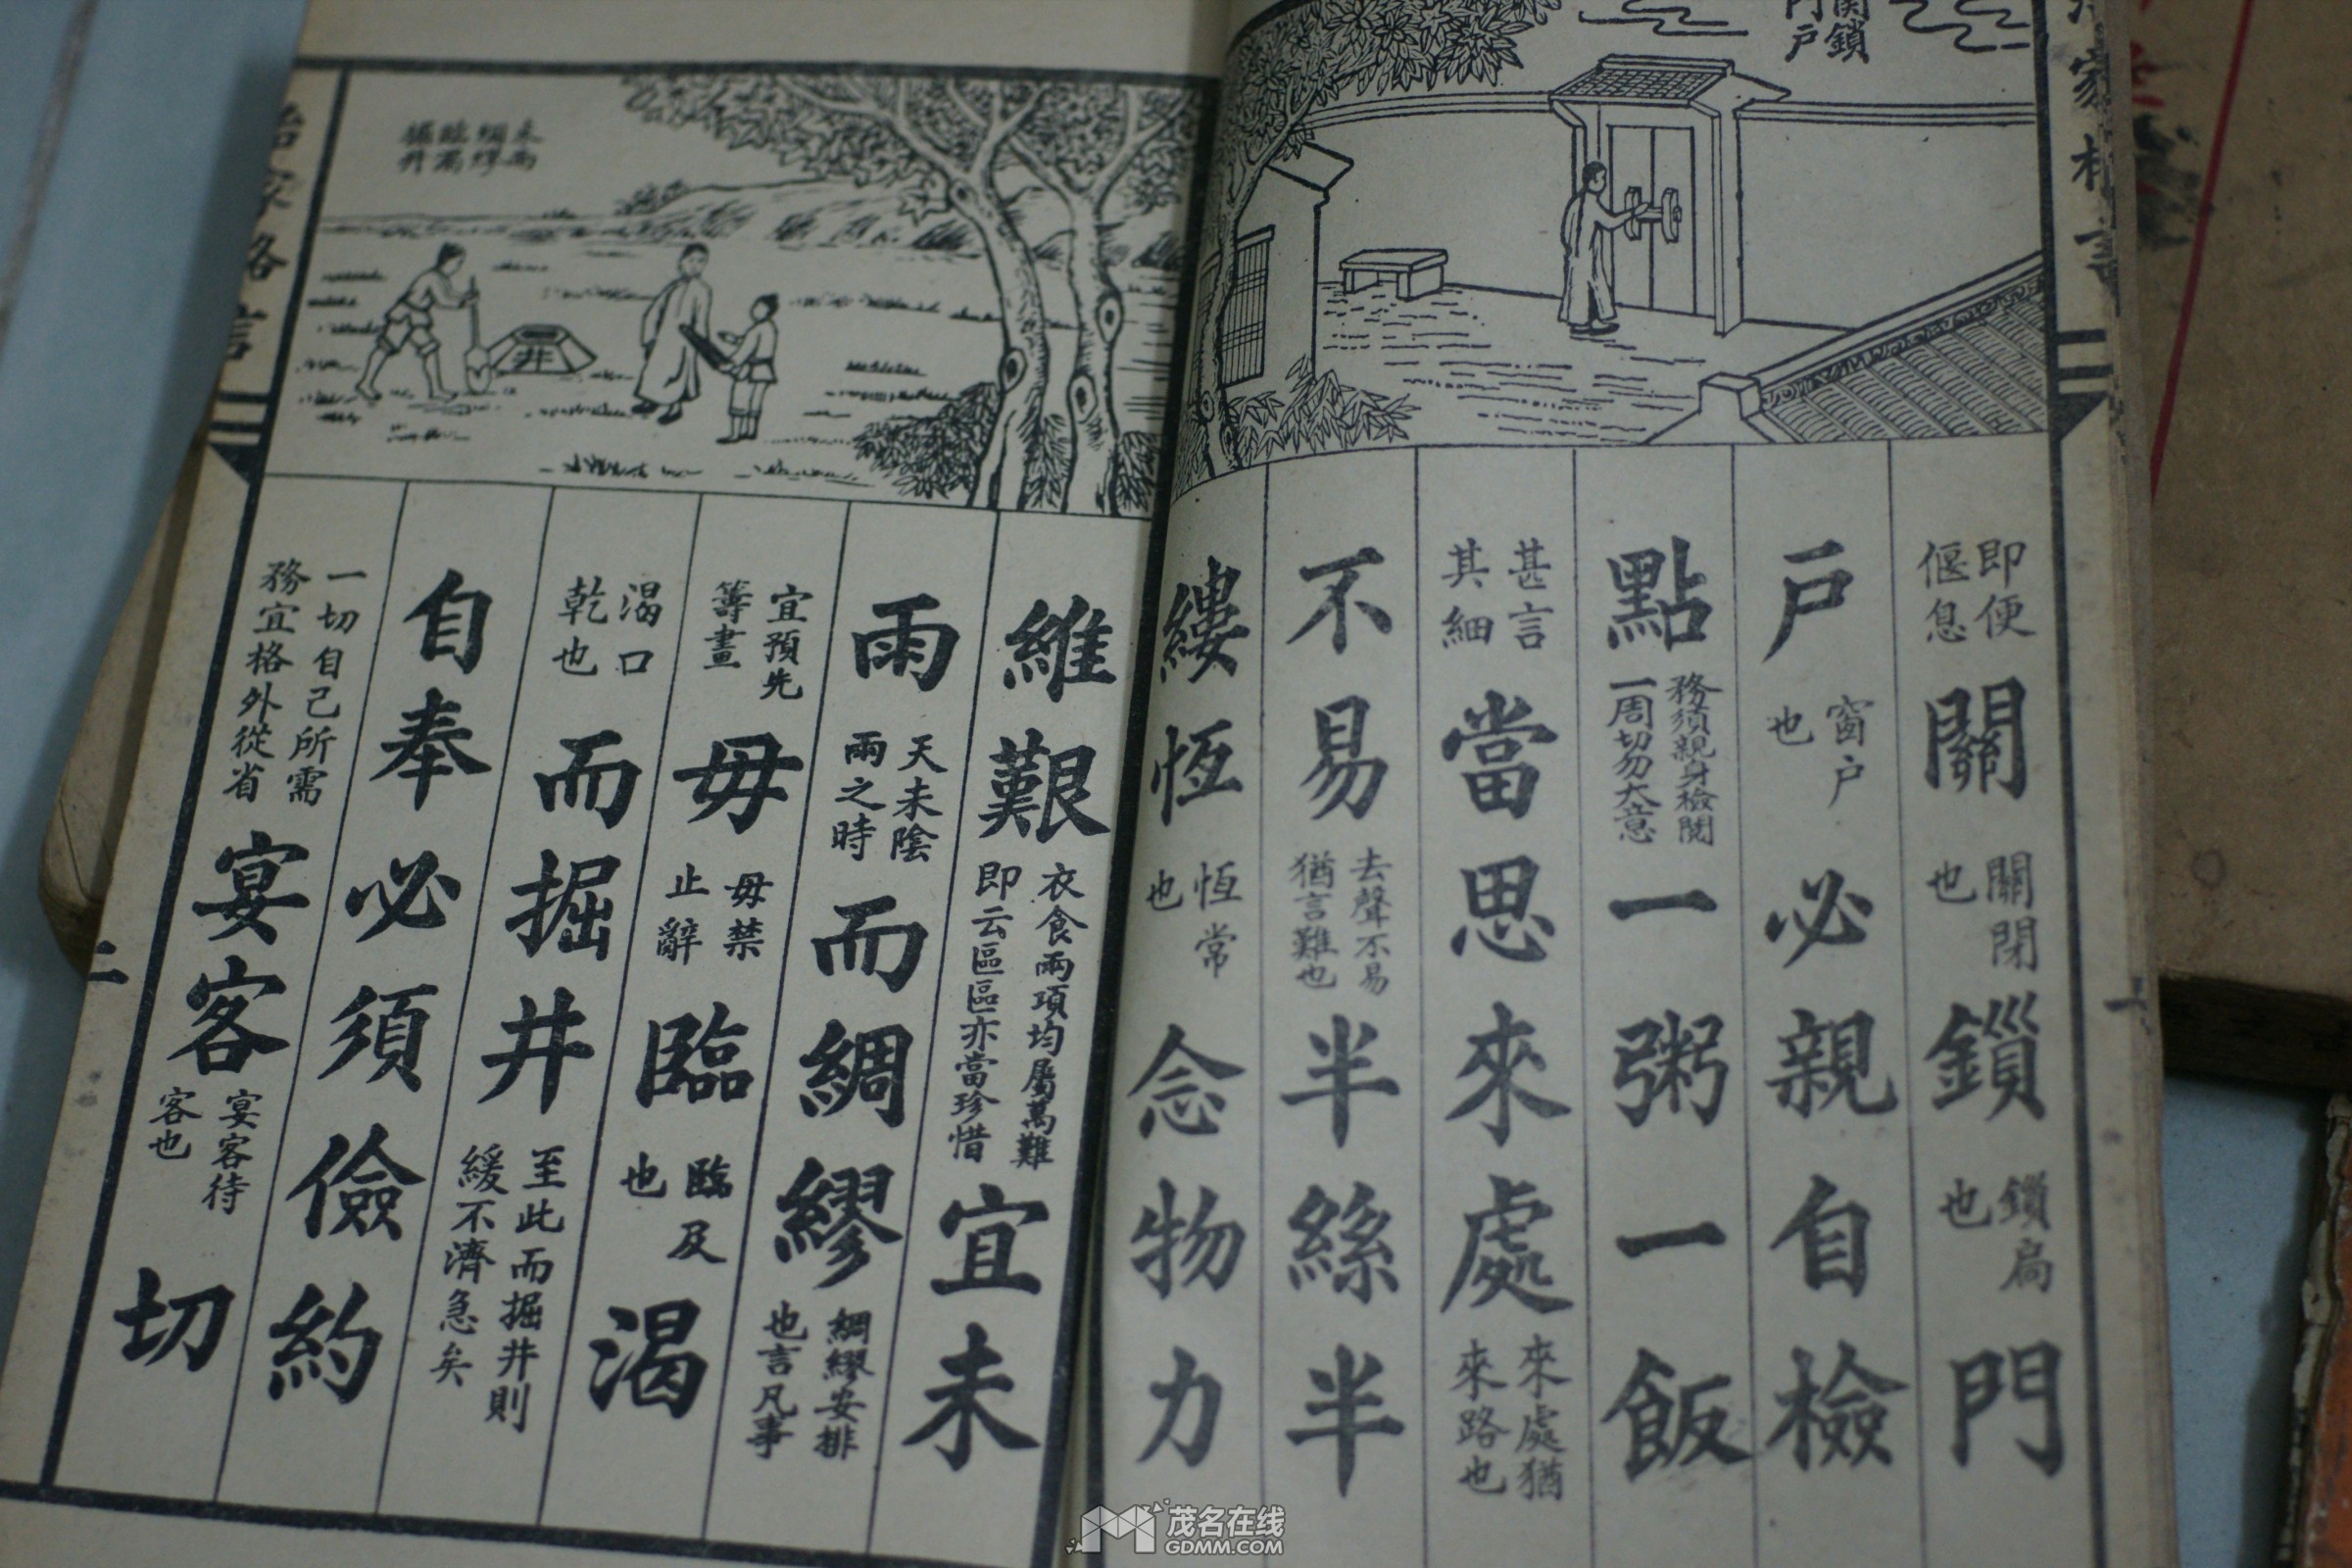 鎖
戶
家格言
即便偃息關關閉也鎖鎖扃也門
戶窗戶也必親自檢
點務須親身檢閱一周切勿大意一粥一飯
甚言其細當思來處來處猶來路也
不易去聲不易猶言難也半絲半
縷恆恆常也念物力
未雨
綢繆
臨渴
掘井
井
維艱衣食兩項均屬萬難即云區區亦當珍惜宜未
雨天未陰雨之時而綢繆綢繆安排也言凡事
宜預先籌畫毋毋禁止辭臨臨及也渴
渴口乾也而掘井至此而掘井則緩不濟急矣
自奉必須儉約
一切自己所需務宜格外從省宴客宴客待客也切
家格言
二
茂名在线
GDMM.COM